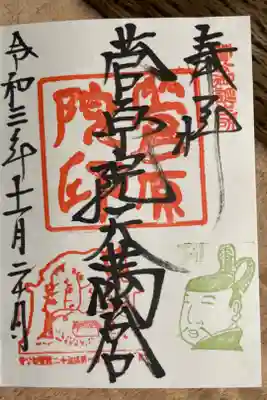 奉拝
菅原院天満宮
令和三年十一月二十日
菅原
院印